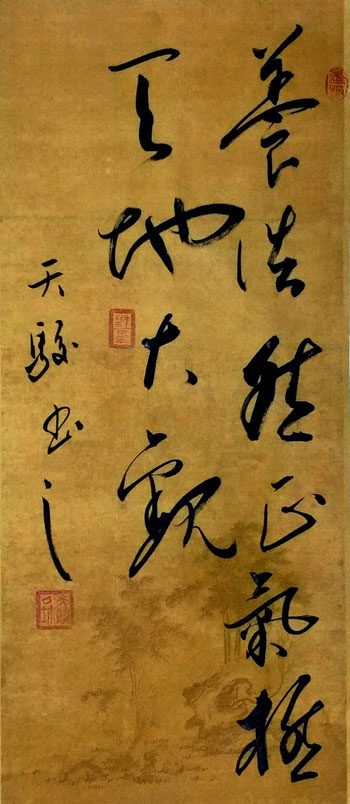 養浩然正氣極
天地大觀
天駿書之